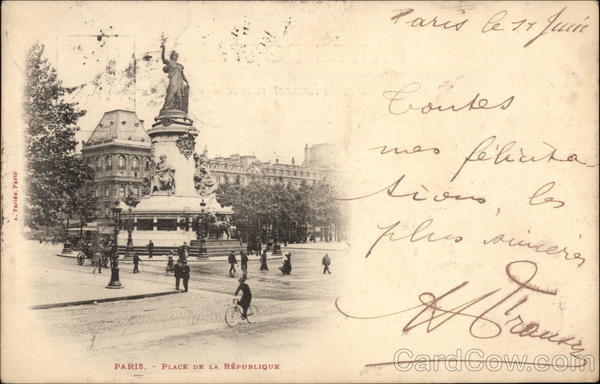 Paris le 17 Juin
Toutes
mes félicita-
tions, les
plus sincères
A. Taride, Paris
PARIS. - PLACE DE LA RÉPUBLIQUE
CardCow.com